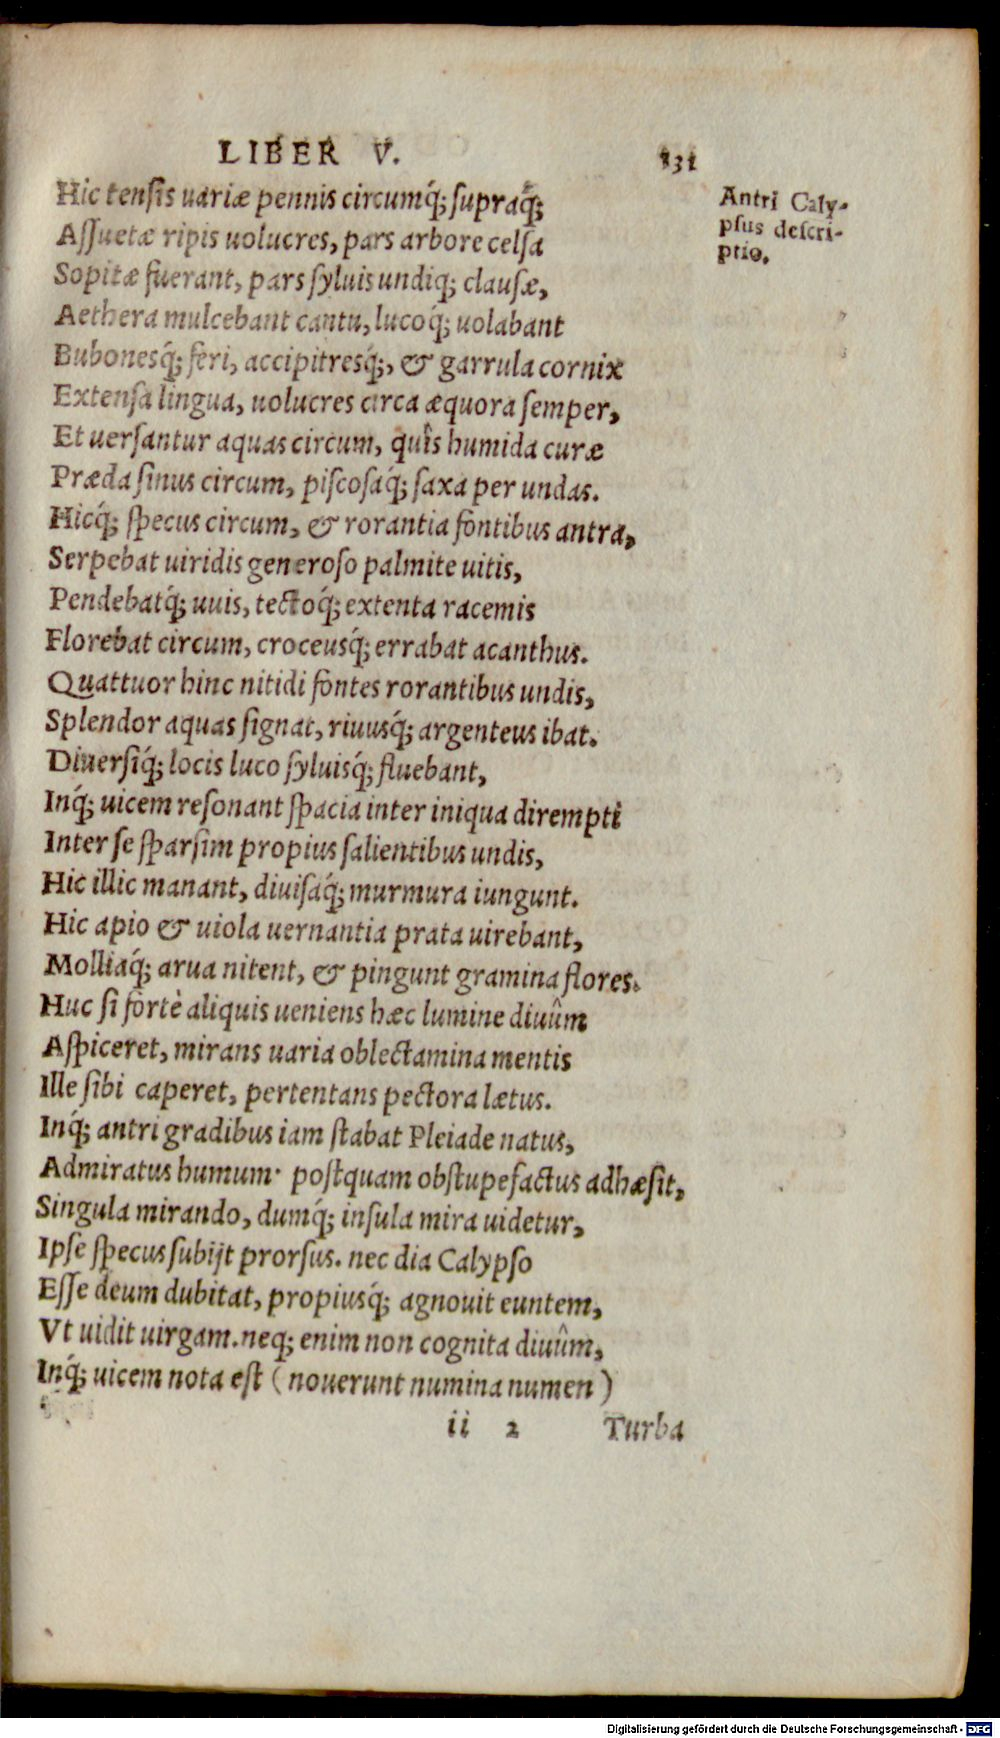 LIBER V. 131
Hic tensis uariæ pennis circumq́; supraq́;
Antri Caly-
psus descri-
ptio.
Assuetæ ripis uolucres, pars arbore celsa
Sopitæ fuerant, pars syluis undiq; clausæ,
Aethera mulcebant cantu, lucoq́; uolabant
Bubonesq́; feri, accipitresq́;, & garrula cornix
Extensa lingua, uolucres circa æquora semper,
Et uersantur aquas circum, quîs humida curæ
Præda sinus circum, piscosaq́; saxa per undas.
Hicq́; specus circum, & rorantia fontibus antra,
Serpebat uiridis generoso palmite uitis,
Pendebatq́; uuis, tectoq́; extenta racemis
Florebat circum, croceusq́; errabat acanthus.
Quattuor hinc nitidi fontes rorantibus undis,
Splendor aquas signat, riuusq́; argenteus ibat.
Diuersiq́; locis luco syluisq́; fluebant,
Inq́; uicem resonant spacia inter iniqua dirempti
Inter se sparsim propius salientibus undis,
Hic illic manant, diuisaq́; murmura iungunt.
Hic apio & uiola uernantia prata uirebant,
Molliaq́; arua nitent, & pingunt gramina flores.
Huc si fortè aliquis ueniens hæc lumine diuûm
Aspiceret, mirans uaria oblectamina mentis
Ille sibi caperet, pertentans pectora lætus.
Inq́; antri gradibus iam stabat Pleiade natus,
Admiratus humum· postquam obstupefactus adhæsit,
Singula mirando, dumq́; insula mira uidetur,
Ipse specus subijt prorsus. nec dia Calypso
Esse deum dubitat, propiusq́; agnouit euntem,
Vt uidit uirgam. neq; enim non cognita diuûm,
Inq́; uicem nota est (nouerunt numina numen)
ii 2 Turba
Digitalisierung gefördert durch die Deutsche Forschungsgemeinschaft - DFG